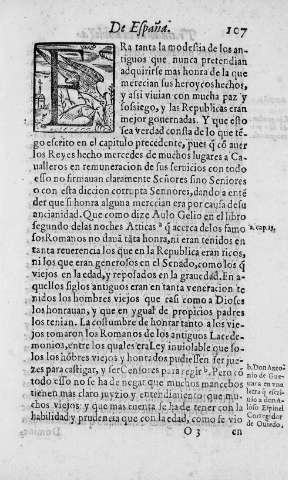 De España. 107
ERa tanta la modestia de los an-
tiguos que nunca pretendian
adquirirse mas honra de la que
merecian sus heroycos hechos,
y assi viuian con mucha paz y
sossiego, y las Republicas eran
mejor gouernadas. Y que esto
sea verdad consta de lo que tē-
go escrito en el capitulo precedente, pues q̄ cō auer
los Reyes hecho mercedes de muchos lugares a Ca-
ualleros en remuneracion de sus seruicios con todo
esso no firmauan claramente Señores sino Seniores
o con esta diccion corrupta Sennores, dando a entē
der que si honra alguna merecian era por causa de su
ancianidad. Que como dize Aulo Gelio en el libro
segundo de las noches Atticas a q̄ acerca de los famo
sos Romanos no dauā tāta hōra, ni eran tenidos en
tanta reuerencia los que en la Republica eran ricos,
ni los que eran generosos en el Senado, como los q̄
viejos en la edad, y reposados en la grauedad. En a-
quellos siglos antiguos eran en tanta veneracion te
nidos los hombres viejos que casi como a Dioses
los honrauan, y que en ygual de propicios padres
los tenian. La costumbre de honrar tanto a los vie-
jos tomaron los Romanos de los antiguos Lacede-
monios, entre los quales era Ley inuiolable que so-
los los hōbres viejos y honrados pudiessen ser jue-
zes para castigar, y ser Censores para regir b. Pero cō
todo esso no se ha de negar que muchos mancebos
tienen mas claro juyzio y entendimiento que mu-
chos viejos: y que mas cuenta se ha de tener con la
habilidad y prudencia que con la edad, como se vio
O 3 en
a. cap. 15.
b. Don Anto-
nio de Gue-
uara en vna
letra q̄ escri-
uio a don A-
lōso Espinel
Corregidor
de Ouiedo.